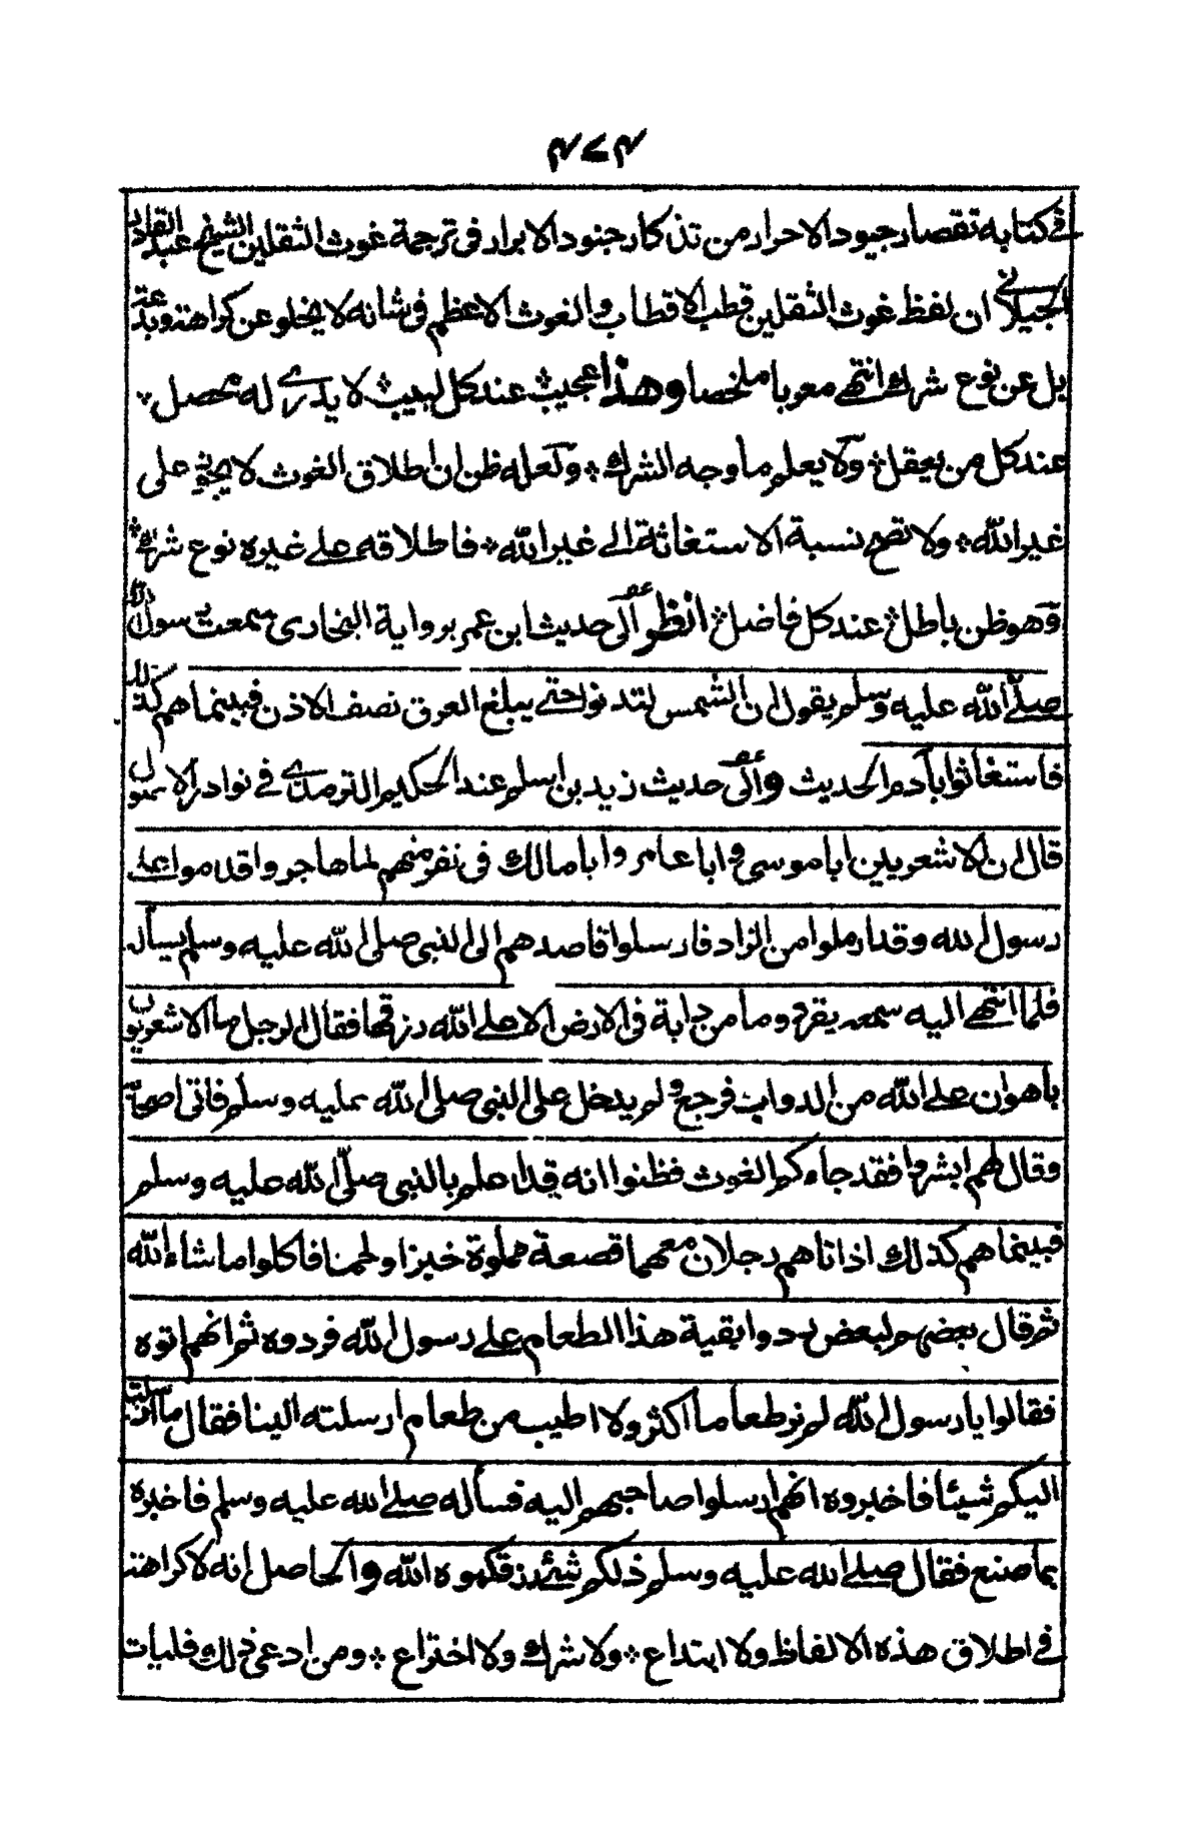 ٤٧٤
في كتابه تقصار جيود الاحرار من تذكار جنود الابرار في ترجمة غوث الثقلين الشيخ عبد القادر
الجيلاني ان لفظ غوث الثقلين قطب الاقطاب والغوث الاعظم في شانه لا يخلو عن كراهته وبدعته
بل عن نوع شرك انتهى معربا ملخصا وهذا عجيب عند كل لبيب لا يدرى له محصل ۞
عند كل من يعقل ۞ ولا يعلم ما وجه الشرك ۞ ولعله ظن ان اطلاق الغوث لا يجوز على
غير الله ۞ ولا تصح نسبة الاستغاثة الى غير الله ۞ فاطلاقه على غيره نوع شرك ۞
وهو ظن باطل ۞ عند كل فاضل ۞ انظر الى حديث ابن عمر برواية البخارى سمعت رسول الله
صلى الله عليه وسلم يقول ان الشمس لتدنو حتى يبلغ العرق نصف الاذن فبينما هم كذلك
فاستغاثوا بآدم الحديث والى حديث زيد بن اسلم عند الحكيم الترمذى في نوادر الاصول
قال ان الاشعريين ابا موسى وابا عامر وابا مالك في نفر منهم لما هاجروا قدموا على
رسول الله وقد ارملوا من الزاد فارسلوا قاصدهم الى النبى صلى الله عليه وسلم يسأله
فلما انتهى اليه سمعه يقرء وما من دابة في الارض الا على الله رزقها فقال الرجل ما الاشعريون
باهون على الله من الدواب فرجع ولم يدخل على النبى صلى الله عليه وسلم فاتى اصحابه
وقال لهم ابشروا فقد جاءكم الغوث فظنوا انه قد اعلم بالنبى صلى الله عليه وسلم
فبينما هم كذلك اذ اتاهم رجلان معهما قصعة مملوة خبزا ولحما فاكلوا ما شاء الله
ثم قال بعضهم لبعض ردوا بقية هذا الطعام على رسول الله فردوه ثم انهم اتوه
فقالوا يا رسول الله لم نر طعاما اكثر ولا اطيب من طعام ارسلته الينا فقال ما ارسلت
اليكم شيئا فاخبروه انهم ارسلوا صاحبهم اليه فسأله صلى الله عليه وسلم فاخبره
بما صنع فقال صلى الله عليه وسلم ذلكم شئ رزقكموه الله والحاصل انه لا كراهة
في اطلاق هذه الالفاظ ولا ابتداع ۞ ولا شرك ولا اختراع ۞ ومن ادعى ذلك فليات